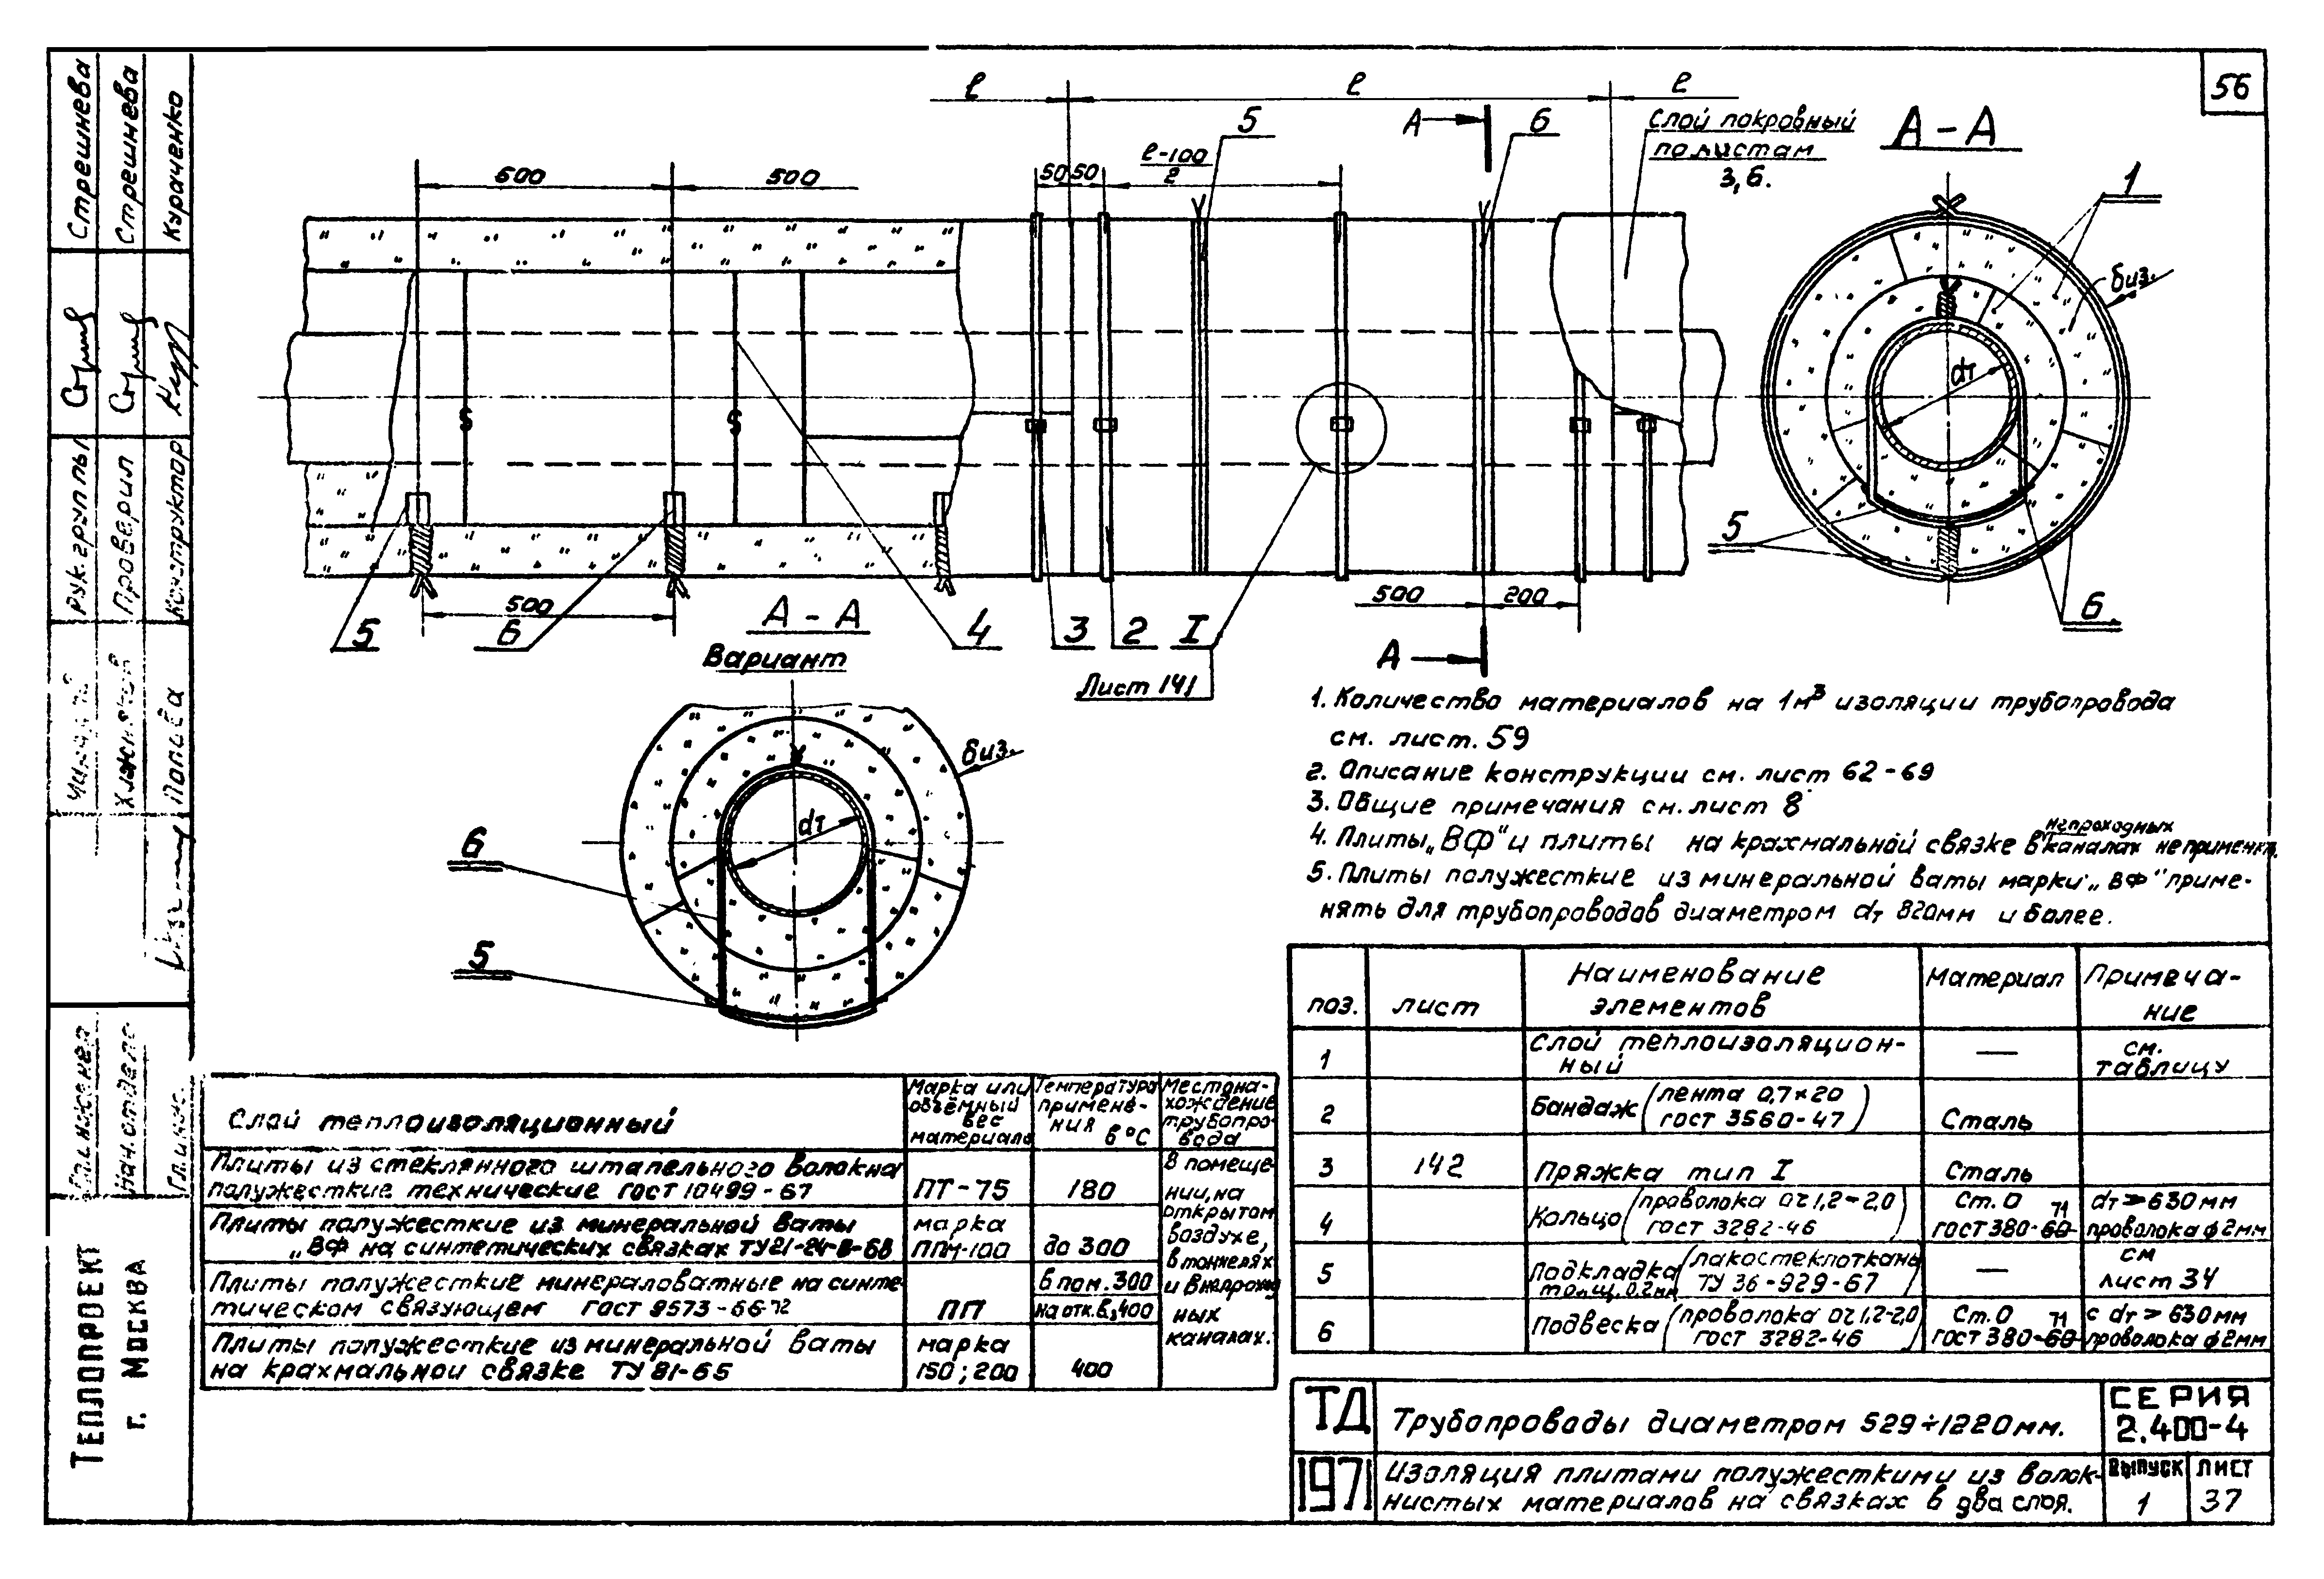 56
ℓ
ℓ
ℓ
А
5
6
Слой покровный
по листам
3, 6.
А - А
500
ℓ-100
2
50 50
1
бuз.
dт
5
6
500
5
6
А - А
Вариант
4
3
2
I
Лист 141
500
200
А
бuз.
dт
6
5
1. Количество материалов на 1м³ изоляции трубопровода
см. лист. 59
2. Описание конструкции см. лист 62-69
3. Общие примечания см. лист 8
4. Плиты „ВФ" и плиты на крахмальной связке в непроходных каналах не применят.
5. Плиты полужесткие из минеральной ваты марки „ВФ" приме-
нять для трубопроводов диаметром dт 820мм и более.
поз. лист Наименование элементов Материал Примеча-
ние
1 Слой теплоизоляцион-
ный — см. таблицу
2 Бандаж (лента 0,7×20 ГОСТ 3560-47) Сталь
3 142 Пряжка тип I Сталь
4 Кольцо (проволока ОЧ 1,2-2,0 ГОСТ 3282-46) Ст. 0 ГОСТ 380-60 71 dт ≥ 630мм проволока ф2мм
5 Подкладка толщ. 0,2мм (лакостеклоткань ТУ 36-929-67) — см лист 34
6 Подвеска (проволока ОЧ 1,2-2,0 ГОСТ 3282-46) Ст. 0 ГОСТ 380-60 71 с dт > 630мм проволока ф2мм
Слой теплоизоляционный
Марка или
объёмный
вес
материала
Температура
примене-
ния
в °С
Местона-
хождение
трубопро-
вода
Плиты из стеклянного штапельного волокна
полужесткие технические ГОСТ 10499-67 ПТ-75 180
Плиты полужесткие из минеральной ваты марка
„ВФ на синтетических связках ТУ21-24-8-68 ППМ-100 до 300
Плиты полужесткие минераловатные на синте- в пом. 300
тическом связующем ГОСТ 9573-66-72 ПП на отк.в.,400
Плиты полужесткие из минеральной ваты марка
на крахмальной связке ТУ 81-65 150; 200 400
В помеще-
нии, на
открытом
воздухе,
в тоннелях
и в непроход
ных
каналах.
ТД
Трубопроводы диаметром 529÷1220мм.
СЕРИЯ
2.400-4
1971
Изоляция плитами полужесткими из волок-
нистых материалов на связках в два слоя.
ВЫПУСК
1
ЛИСТ
37
Стрешнева
Стрешнева
Кураченко
Рук. группы
Проверил
Конструктор
Попьёва
Гл. инженер
Нач. отдела
ТЕПЛОПРОЕКТ
г. МОСКВА